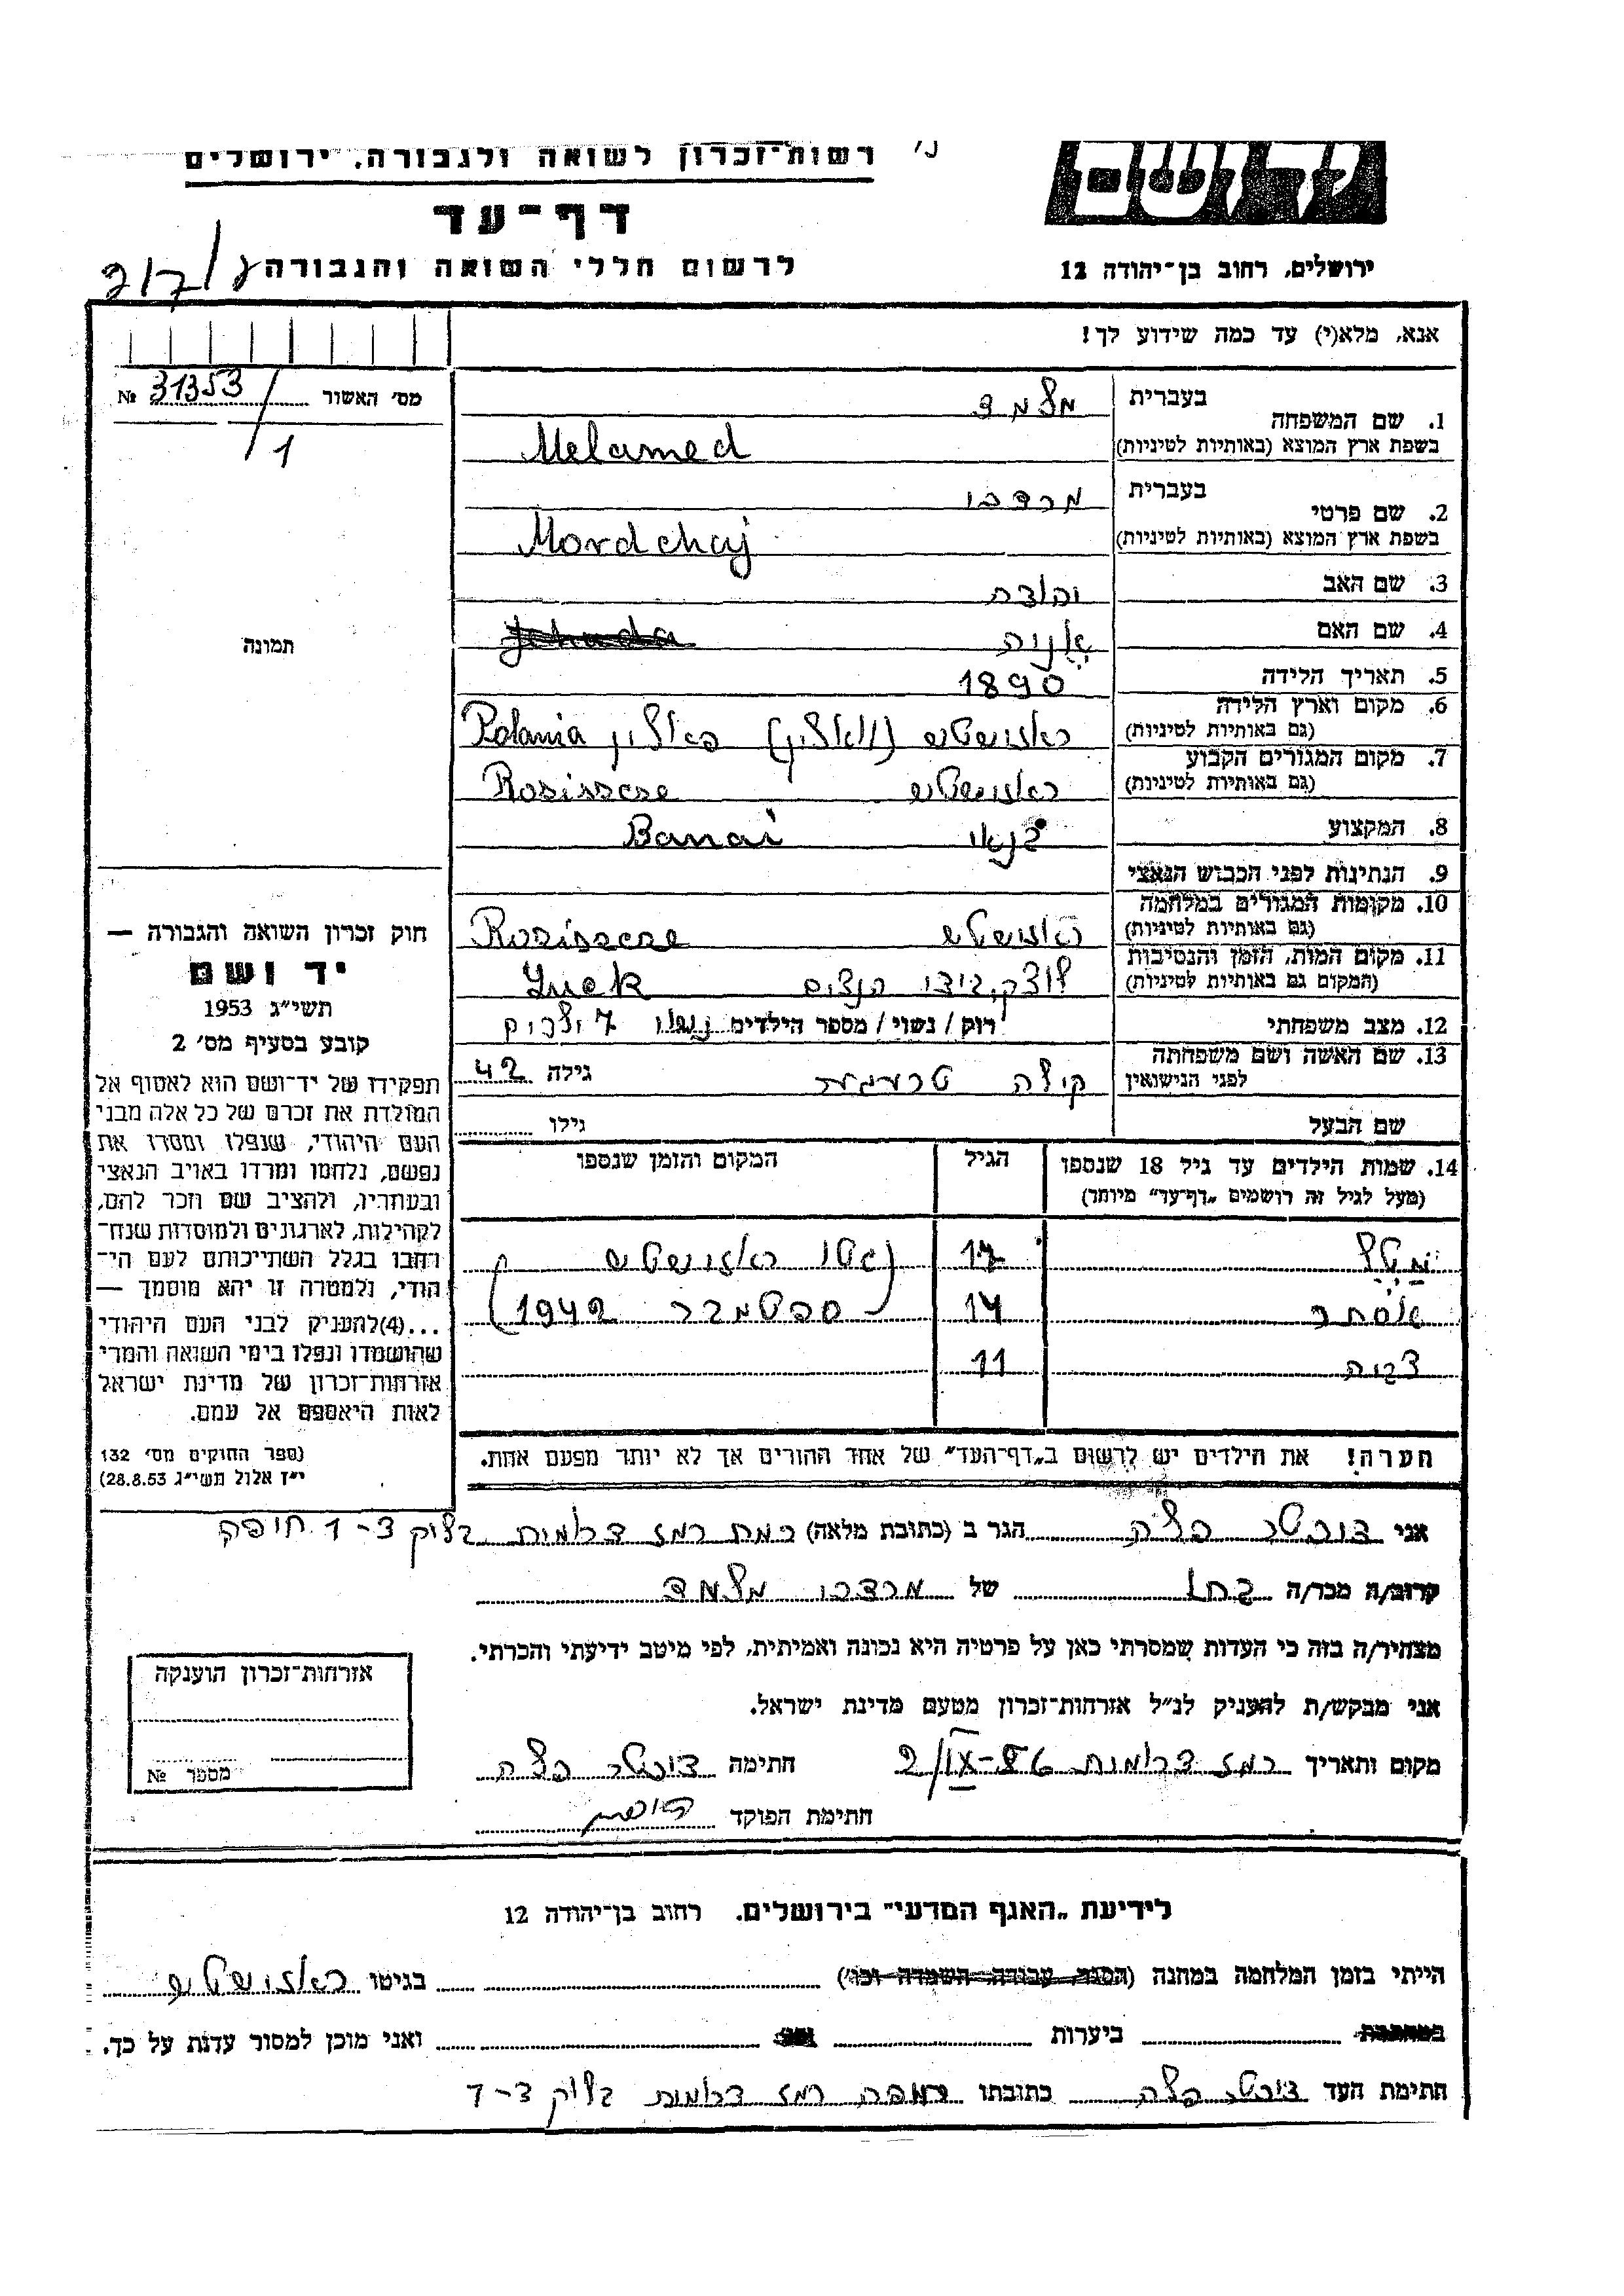 רשות־זכרון לשואה ולגבורה, ירושלים
דף־עד
לרשום חללי השואה והגבורה
ירושלים, רחוב בן־יהודה 12
אנא, מלא(י) עד כמה שידוע לך!
מס׳ האשור № 31353/1
1. שם המשפחה
בעברית מלמד
בשפת ארץ המוצא (באותיות לטיניות) Melamed
2. שם פרטי
בעברית מרדכי
בשפת ארץ המוצא (באותיות לטיניות) Mordchaj
3. שם האב יהודה
4. שם האם
5. תאריך הלידה 1890
6. מקום וארץ הלידה
(גם באותיות לטיניות) ראזישטש (וואלין) פאלין Polania
7. מקום המגורים הקבוע
(גם באותיות לטיניות) ראזישטש Rosiszcze
8. המקצוע בנאי Banai
9. הנתינות לפני הכבוש הנאצי
10. מקומות המגורים במלחמה
(גם באותיות לטיניות) ראזישטש Rosiszcze
11. מקום המות, הזמן והנסיבות
(המקום גם באותיות לטיניות) לוצק, בידי הנצים Łuck
12. מצב משפחתי רוק / נשוי / מספר הילדים נשוי 7 ילדים
13. שם האשה ושם משפחתה
לפני הנישואין קילה גילה 42
שם הבעל גילו
תמונה
חוק זכרון השואה והגבורה —
יד ושם
תשי״ג 1953
קובע בסעיף מס׳ 2
תפקידו של יד־ושם הוא לאסוף אל
המולדת את זכרם של כל אלה מבני
העם היהודי, שנפלו ומסרו את
נפשם, נלחמו ומרדו באויב הנאצי
ובעוזריו, ולהציב שם וזכר להם,
לקהילות, לארגונים ולמוסדות שנח־
רבו בגלל השתייכותם לעם הי־
הודי, ולמטרה זו יהא מוסמך —
...(4)להעניק לבני העם היהודי
שהושמדו ונפלו בימי השואה והמרי
אזרחות־זכרון של מדינת ישראל
לאות היאספם אל עמם.
(ספר החוקים מס׳ 132
י״ז אלול תשי״ג 28.8.53)
14. שמות הילדים עד גיל 18 שנספו
(מעל לגיל זה רושמים „דף־עד״ מיוחד)
הגיל
המקום והזמן שנספו
17 (גטו ראזישטש
אסתר 14 ספטמבר 1942)
צביה 11
הערה! את הילדים יש לרשום ב„דף־העד״ של אחד ההורים אך לא יותר מפעם אחת.
אני הגר ב (כתובת מלאה) רמת רמז דרומית בלוק צ-1 חיפה
קרוב/ה מכר/ה של מרדכי מלמד
מצהיר/ה בזה כי העדות שמסרתי כאן על פרטיה היא נכונה ואמיתית, לפי מיטב ידיעתי והכרתי.
אני מבקש/ת להעניק לנ״ל אזרחות־זכרון מטעם מדינת ישראל.
מקום ותאריך רמז דרומית 2/IX-56 חתימה
חתימת הפוקד
אזרחות־זכרון הוענקה
מספר №
לידיעת „האגף המדעי״ בירושלים. רחוב בן־יהודה 12
הייתי בזמן המלחמה במחנה (הסגר, עבודה, השמדה וכו׳) בגיטו ראזישטש
במחתרת ביערות ואני מוכן למסור עדות על כך.
חתימת העד כתובתו רמת רמז דרומית בלוק צ-7